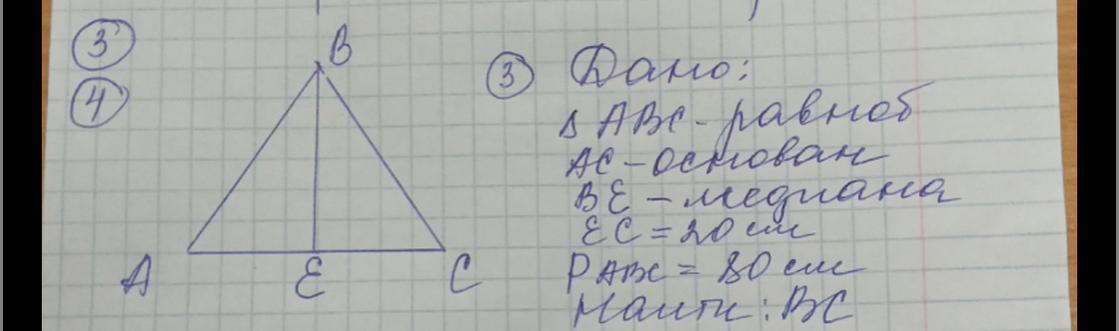 3
4
B
A
E
C
3 Дано:
Δ ABC - равноб
AC - основан
BE - медиана
EC = 20 см
P ABC = 80 см
Найти: BC